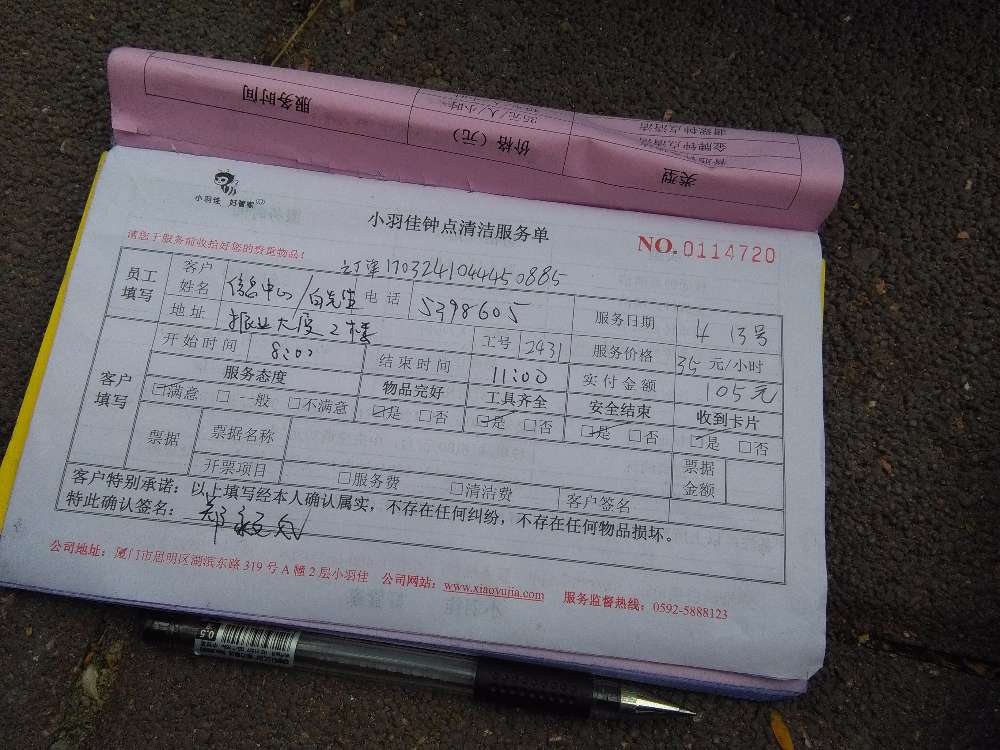 服务时间
价格（元）
类型
35元/人/小时
普通钟点清洁
金牌钟点清洁
小羽佳 好管家
小羽佳钟点清洁服务单
NO.0114720
请您于服务前收拾好您的贵重物品！
订单1703241044450885
员工填写
客户姓名 信息中心/白先生 电话 5398605 服务日期 4 13号
地址 振业大厦2楼 工号 2431 服务价格 35元/小时
客户填写
开始时间 8:00 结束时间 11:00 实付金额 105元
服务态度 物品完好 工具齐全 安全结束 收到卡片
☑满意 □一般 □不满意 ☑是 □否 ☑是 □否 ☑是 □否 ☑是 □否
票据 票据名称 票据金额
开票项目 □服务费 □清洁费 客户签名
客户特别承诺：以上填写经本人确认属实，不存在任何纠纷，不存在任何物品损坏。
特此确认签名：
公司地址：厦门市思明区湖滨东路319号A幢2层小羽佳 公司网站：www.xiaoyujia.com 服务监督热线：0592-5888123
0.5